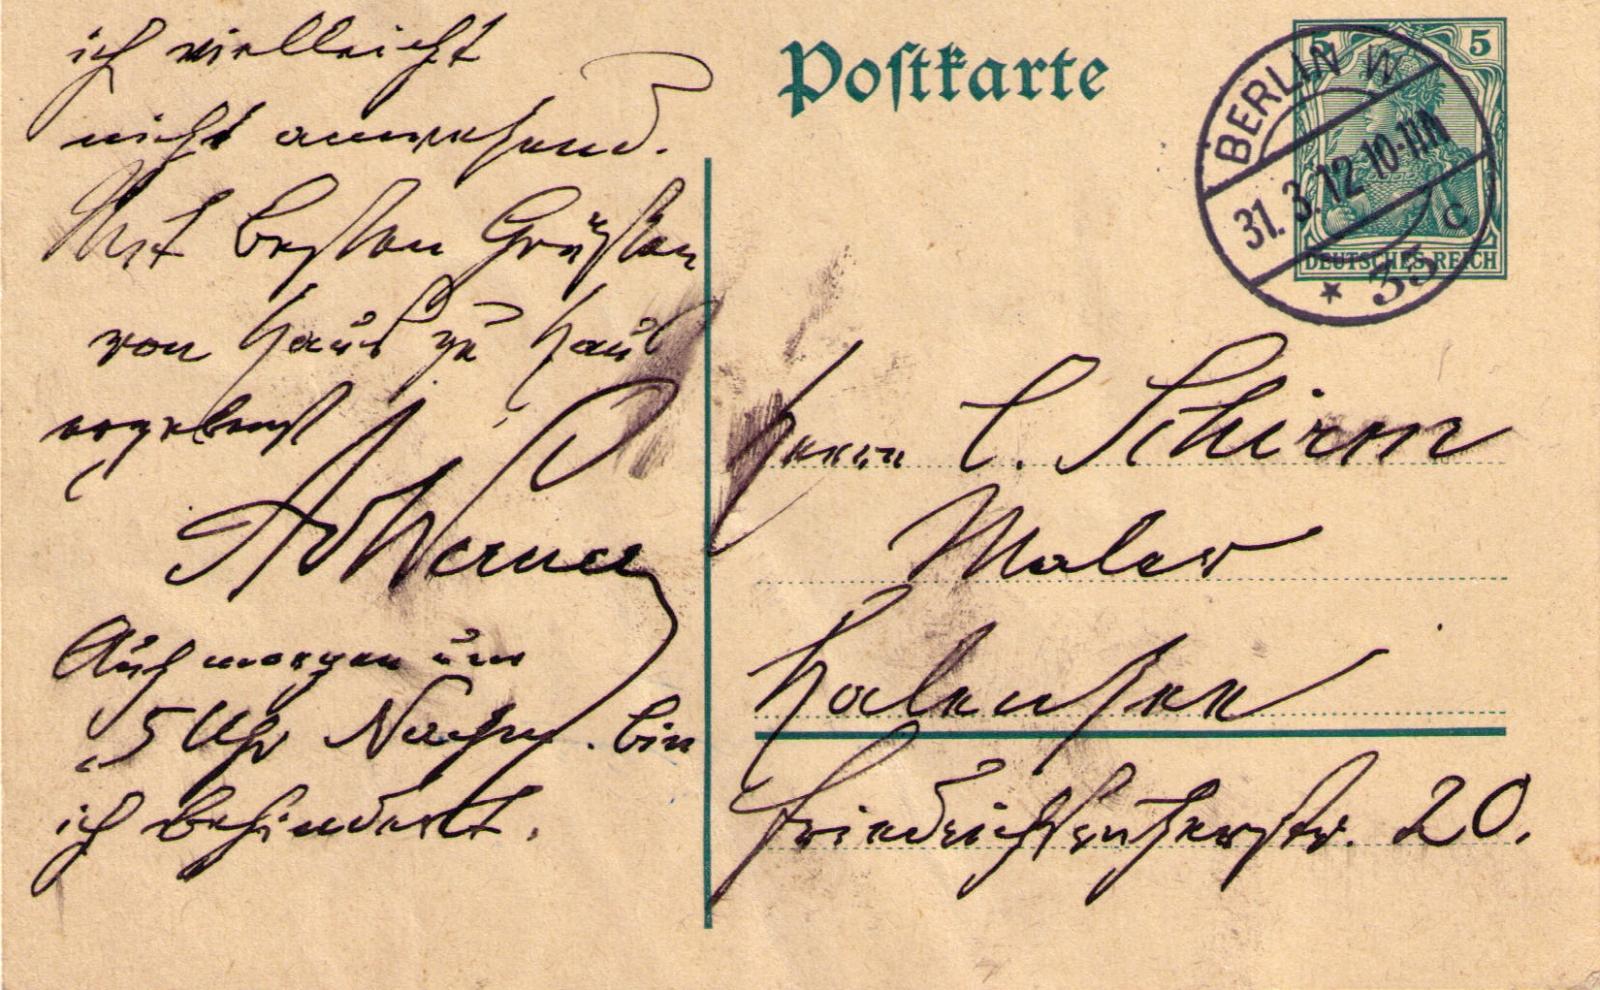 ich vielleicht
nicht anwesend.
Mit besten Grüßen
von Haus zu Haus
ergebenst
AvWerner
Auch morgen um
5 Uhr Nachm. bin
ich behindert.
Postkarte
5 5
DEUTSCHES REICH
BERLIN W
31.3.12 10-11N
* 35 c
Herrn C. Schirm
Maler
Halensee
Friedrichsruherstr. 20.